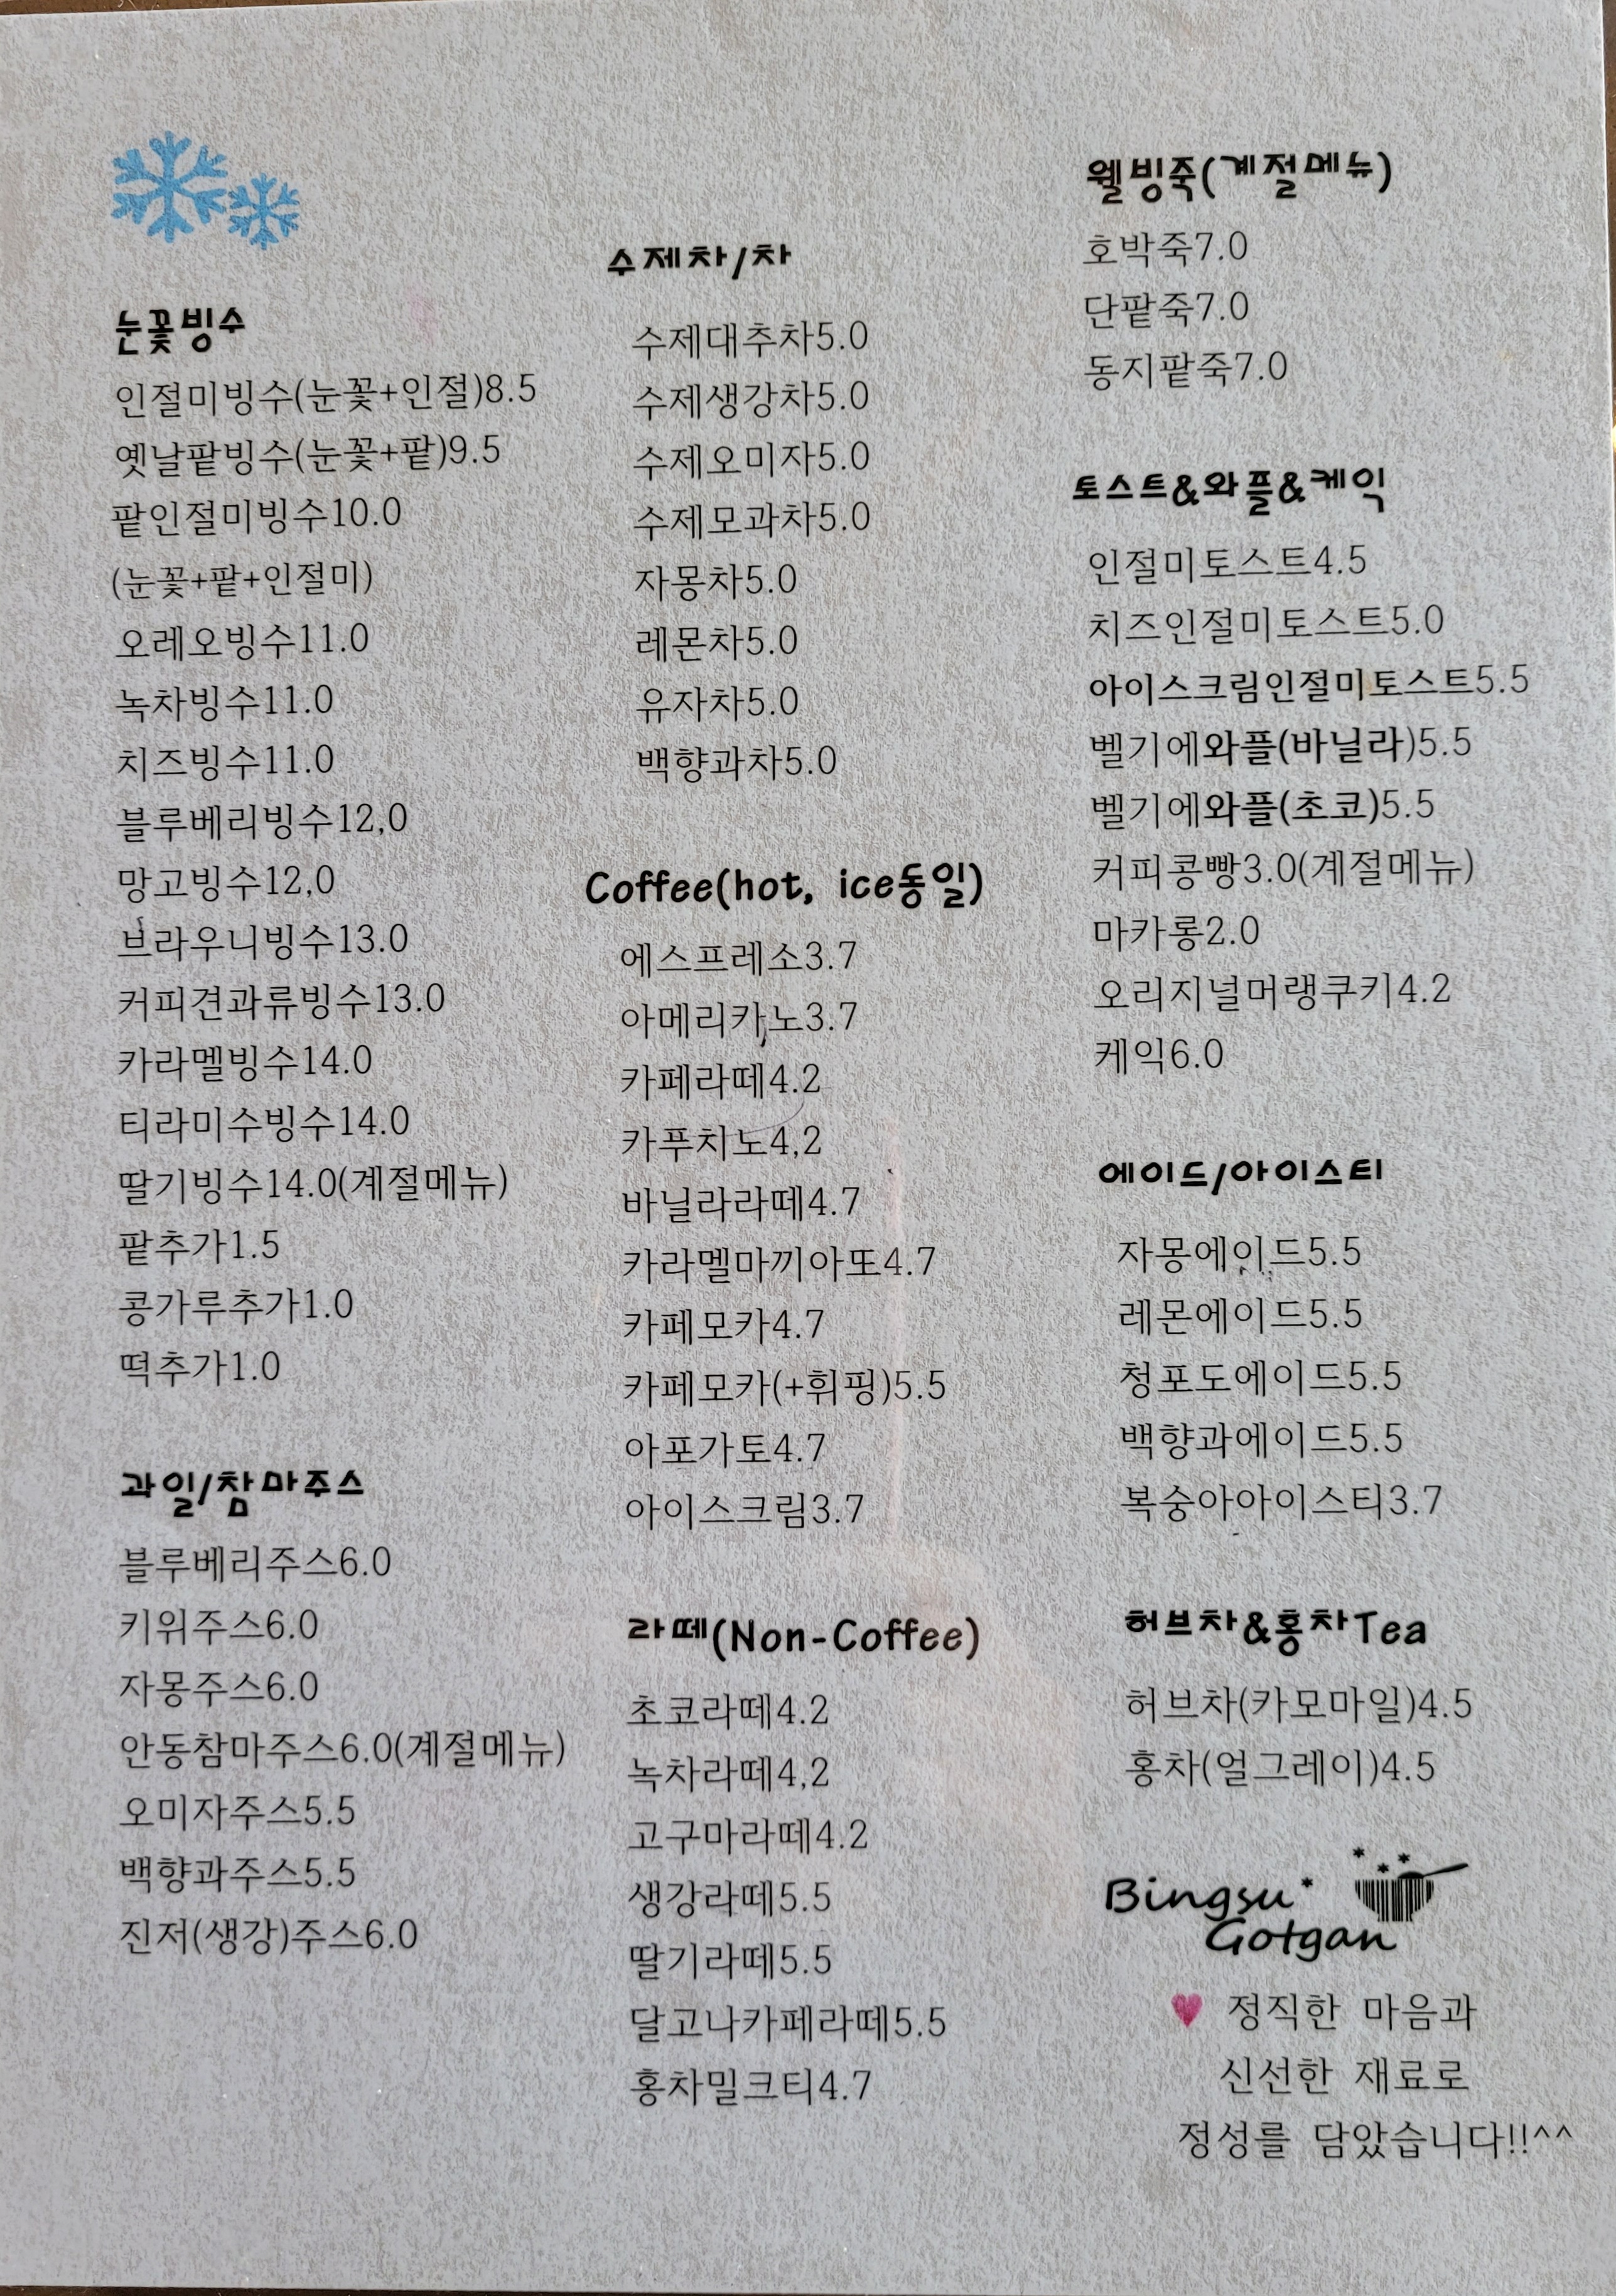 눈꽃빙수
인절미빙수(눈꽃+인절)8.5
옛날팥빙수(눈꽃+팥)9.5
팥인절미빙수10.0
(눈꽃+팥+인절미)
오레오빙수11.0
녹차빙수11.0
치즈빙수11.0
블루베리빙수12,0
망고빙수12,0
브라우니빙수13.0
커피견과류빙수13.0
카라멜빙수14.0
티라미수빙수14.0
딸기빙수14.0(계절메뉴)
팥추가1.5
콩가루추가1.0
떡추가1.0
과일/참마주스
블루베리주스6.0
키위주스6.0
자몽주스6.0
안동참마주스6.0(계절메뉴)
오미자주스5.5
백향과주스5.5
진저(생강)주스6.0
수제차/차
수제대추차5.0
수제생강차5.0
수제오미자5.0
수제모과차5.0
자몽차5.0
레몬차5.0
유자차5.0
백향과차5.0
Coffee(hot, ice동일)
에스프레소3.7
아메리카노3.7
카페라떼4.2
카푸치노4,2
바닐라라떼4.7
카라멜마끼아또4.7
카페모카4.7
카페모카(+휘핑)5.5
아포가토4.7
아이스크림3.7
라떼(Non-Coffee)
초코라떼4.2
녹차라떼4,2
고구마라떼4.2
생강라떼5.5
딸기라떼5.5
달고나카페라떼5.5
홍차밀크티4.7
웰빙죽(계절메뉴)
호박죽7.0
단팥죽7.0
동지팥죽7.0
토스트&와플&케익
인절미토스트4.5
치즈인절미토스트5.0
아이스크림인절미토스트5.5
벨기에와플(바닐라)5.5
벨기에와플(초코)5.5
커피콩빵3.0(계절메뉴)
마카롱2.0
오리지널머랭쿠키4.2
케익6.0
에이드/아이스티
자몽에이드5.5
레몬에이드5.5
청포도에이드5.5
백향과에이드5.5
복숭아아이스티3.7
허브차&홍차Tea
허브차(카모마일)4.5
홍차(얼그레이)4.5
Bingsu
Gotgan
♥ 정직한 마음과
신선한 재료로
정성를 담았습니다!!^^